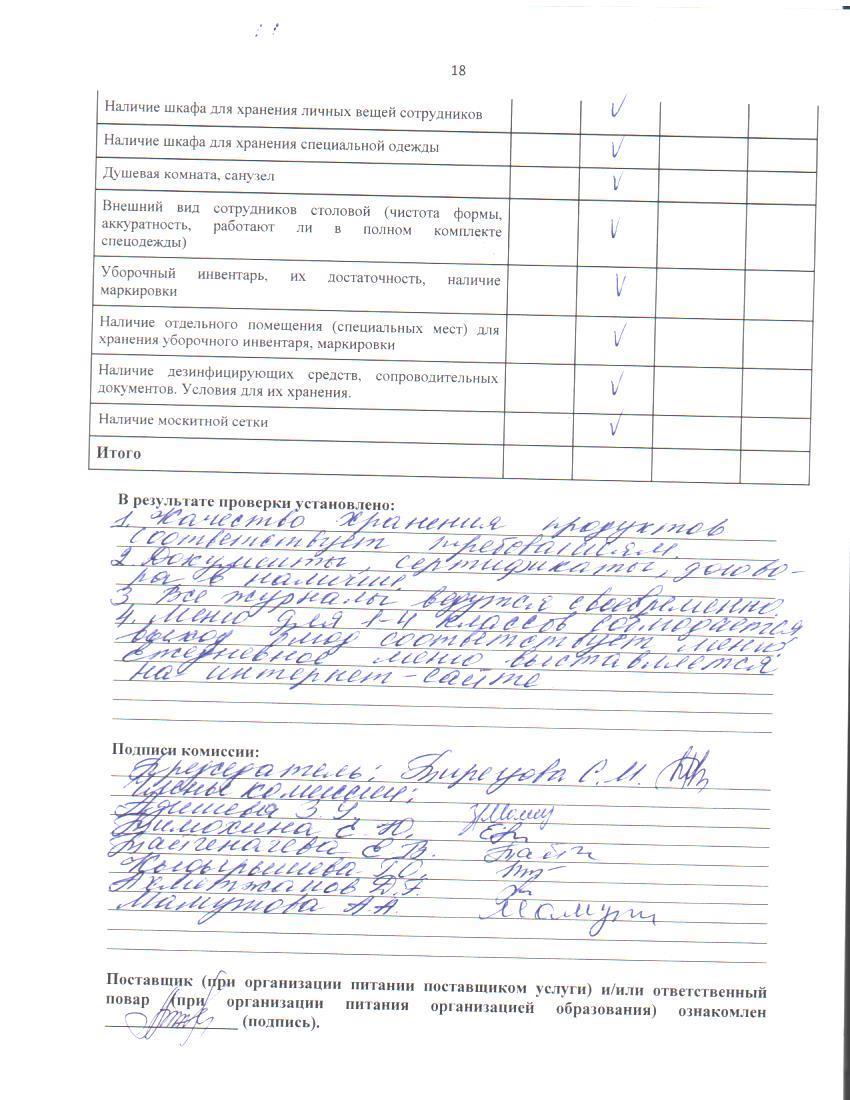 18
Наличие шкафа для хранения личных вещей сотрудников
Наличие шкафа для хранения специальной одежды
Душевая комната, санузел
Внешний вид сотрудников столовой (чистота формы,
аккуратность, работают ли в полном комплекте
спецодежды)
Уборочный инвентарь, их достаточность, наличие
маркировки
Наличие отдельного помещения (специальных мест) для
хранения уборочного инвентаря, маркировки
Наличие дезинфицирующих средств, сопроводительных
документов. Условия для их хранения.
Наличие москитной сетки
Итого
В результате проверки установлено:
1. Качество хранения продуктов
соответствует требованиям
2. Документы, сертификаты, догово-
ра в наличие
3 Все журналы ведутся своевременно.
4. Меню для 1-4 классов соблюдается,
выход блюд соответствует меню.
Ежедневное меню выставляется
на интернет-сайте
Подписи комиссии:
Председатель: С.М.
Члены комиссии:
З.У.
Тимохина Е.Ю.
Е.В.
Ахметжанов Д.
А.А.
Поставщик (при организации питании поставщиком услуги) и/или ответственный
повар (при организации питания организацией образования) ознакомлен
(подпись).